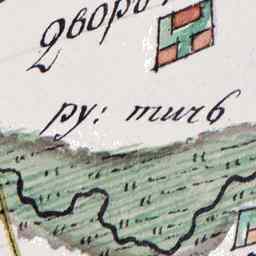 дворъ
ру: тичь